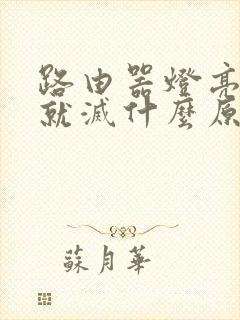 路由器燈亮
就滅什麼原
蘇月華